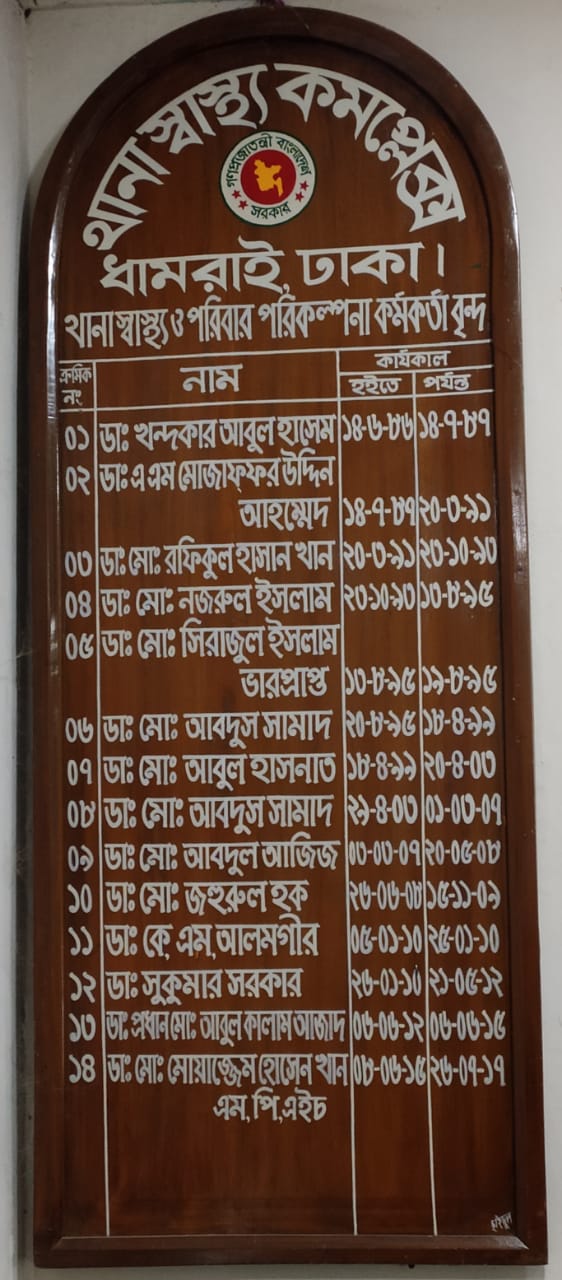 থানা স্বাস্থ্য কমপ্লেক্স
গণপ্রজাতন্ত্রী বাংলাদেশ
সরকার
ধামরাই, ঢাকা।
থানা স্বাস্থ্য ও পরিবার পরিকল্পনা কর্মকর্তা বৃন্দ
ক্রমিক নং নাম কার্যকাল
হইতে পর্যন্ত
০১ ডাঃ খন্দকার আবুল হাসেম ১৪-৬-৮৬ ১৪-৭-৮৭
০২ ডাঃ এ এম মোজাফ্ফর উদ্দিন
আহম্মেদ ১৪-৭-৮৭ ২০-৩-৯১
০৩ ডাঃ মোঃ রফিকুল হাসান খান ২০-৩-৯১ ২৩-১০-৯৩
০৪ ডাঃ মোঃ নজরুল ইসলাম ২৩-১০-৯৩ ১৩-৮-৯৫
০৫ ডাঃ মোঃ সিরাজুল ইসলাম
ভারপ্রাপ্ত ১৩-৮-৯৫ ১৯-৮-৯৫
০৬ ডাঃ মোঃ আবদুস সামাদ ২০-৮-৯৫ ১৮-৪-৯৯
০৭ ডাঃ মোঃ আবুল হাসনাত ১৮-৪-৯৯ ২০-৪-০৩
০৮ ডাঃ মোঃ আবদুস সামাদ ২৯-৪-০৩ ০১-০৩-০৭
০৯ ডাঃ মোঃ আবদুল আজিজ ০৩-০৩-০৭ ২০-০৫-০৮
১০ ডাঃ মোঃ জহুরুল হক ২৬-০৬-০৮ ১৫-১১-০৯
১১ ডাঃ কে, এম, আলমগীর ০৫-০১-১০ ২৫-০১-১০
১২ ডাঃ সুকুমার সরকার ২৬-০১-১০ ২১-০৫-১২
১৩ ডাঃ প্রধান মোঃ আবুল কালাম আজাদ ০৬-০৬-১২ ০৬-০৬-১৫
১৪ ডাঃ মোঃ মোয়াজ্জেম হোসেন খান ০৮-০৬-১৫ ২৬-০৭-১৭
এম, পি, এইচ